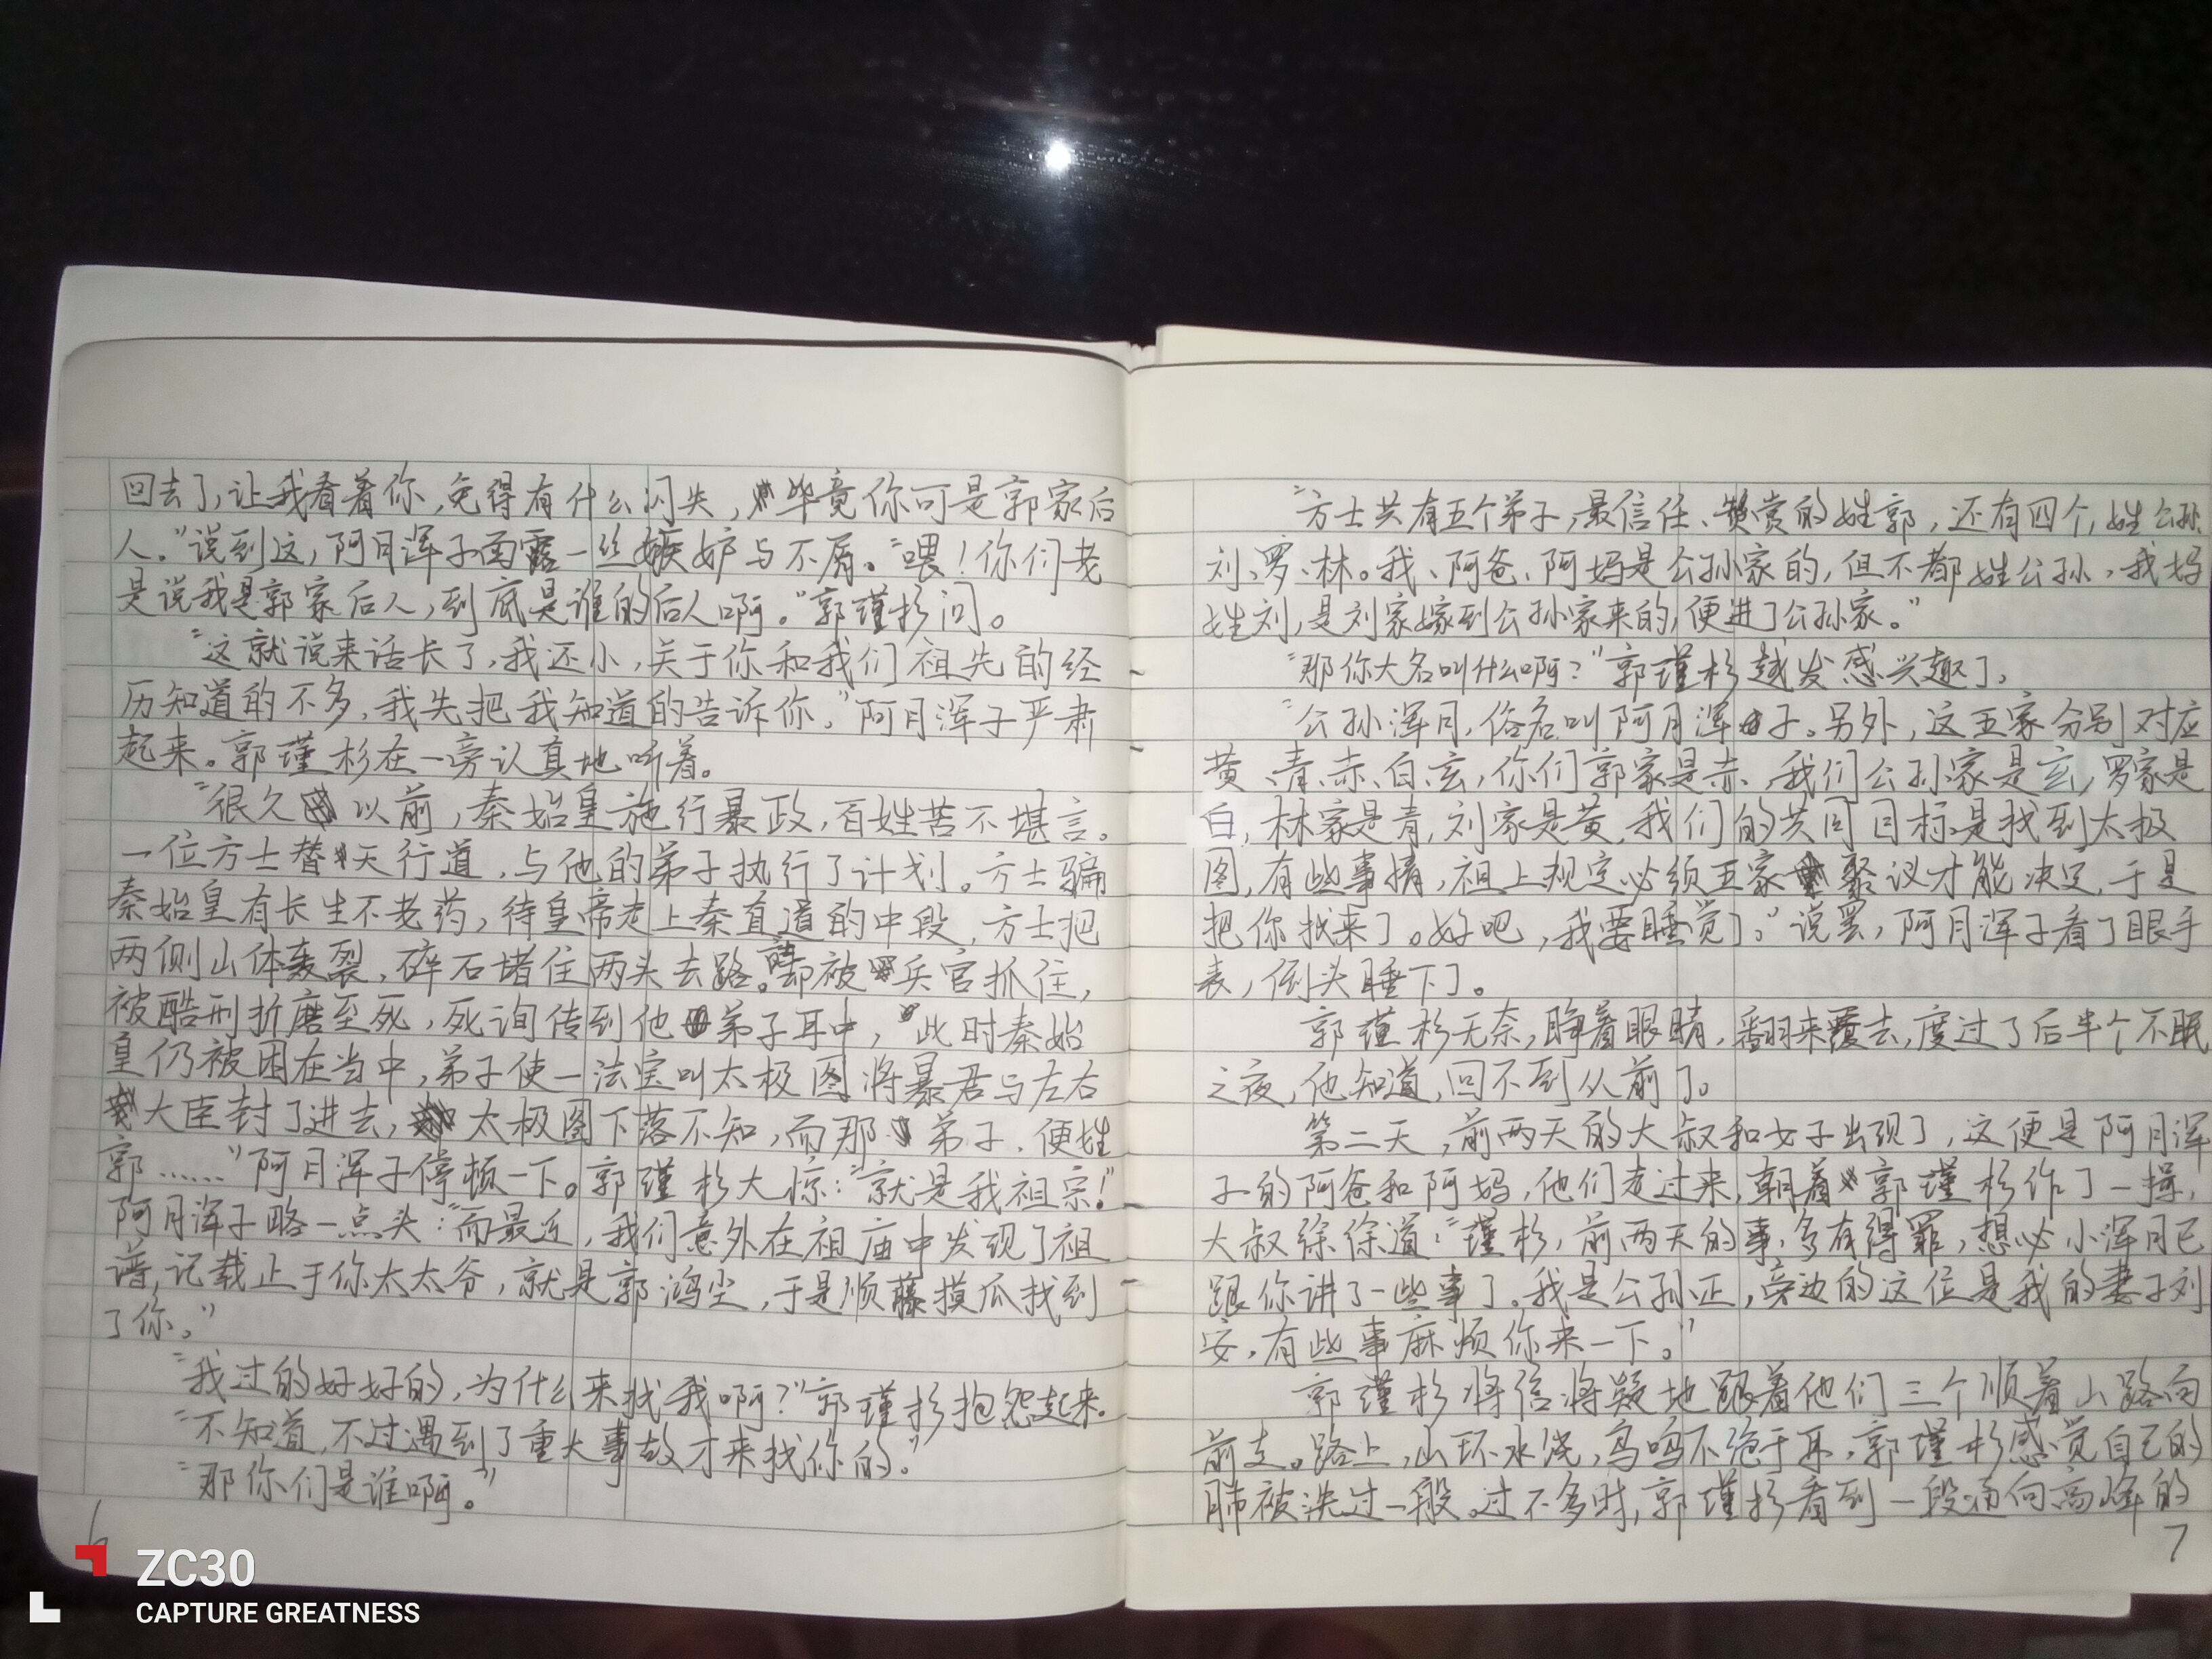 回去了,让我看着你,免得有什么闪失,毕竟你可是郭家后
人。"说到这,阿月浑子面露一丝嫉妒与不屑。"喂!你们老
是说我是郭家后人,到底是谁的后人啊。"郭瑾杉问。
"这就说来话长了,我还小,关于你和我们祖先的经
历知道的不多,我先把我知道的告诉你。"阿月浑子严肃
起来。郭瑾杉在一旁认真地听着。
"很久以前,秦始皇施行暴政,百姓苦不堪言。
一位方士替天行道,与他的弟子执行了计划。方士骗
秦始皇有长生不老药,待皇帝走上秦直道的中段,方士把
两侧山体轰裂,碎石堵住两头去路。却被兵官抓住,
被酷刑折磨至死,死询传到他弟子耳中,此时秦始
皇仍被困在当中,弟子使一法宝叫太极图将暴君与左右
大臣封了进去,太极图下落不知,而那弟子,便姓
郭……"阿月浑子停顿一下。郭瑾杉大惊:"就是我祖宗!"
阿月浑子略一点头:"而最近,我们意外在祖庙中发现了祖
谱,记载止于你太太爷,就是郭鸿尘,于是顺藤摸瓜找到
了你。"
"我过的好好的,为什么来找我啊?"郭瑾杉抱怨起来。
"不知道,不过遇到了重大事故才来找你的。"
"那你们是谁啊。"
6
"方士共有五个弟子,最信任、赞赏的姓郭,还有四个,姓公孙、
刘、罗、林。我、阿爸、阿妈是公孙家的,但不都姓公孙,我妈
姓刘,是刘家嫁到公孙家来的,便进了公孙家。"
"那你大名叫什么啊?"郭瑾杉越发感兴趣了。
"公孙浑月,俗名叫阿月浑子。另外,这五家分别对应
黄、青、赤、白、玄,你们郭家是赤,我们公孙家是玄,罗家是
白,林家是青,刘家是黄,我们的共同目标是找到太极
图,有些事情,祖上规定必须五家聚议才能决定,于是
把你找来了。好吧,我要睡觉了。"说罢,阿月浑子看了眼手
表,倒头睡下了。
郭瑾杉无奈,睁着眼睛,翻来覆去,度过了后半个不眠
之夜,他知道,回不到从前了。
第二天,前两天的大叔和女子出现了,这便是阿月浑
子的阿爸和阿妈,他们走过来,朝着郭瑾杉作了一揖,
大叔徐徐道:"瑾杉,前两天的事,多有得罪,想必小浑月已
跟你讲了一些事了。我是公孙正,旁边的这位是我的妻子刘
安,有些事麻烦你来一下。"
郭瑾杉将信将疑地跟着他们三个顺着山路向
前走。路上,山环水绕,鸟鸣不绝于耳,郭瑾杉感觉自己的
肺被洗过一般。过不多时,郭瑾杉看到一段通向高峰的
7
ZC30
CAPTURE GREATNESS